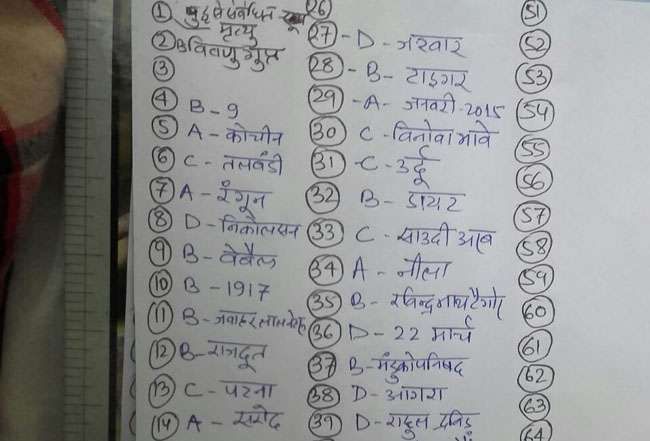 ① बुद्ध से संबंधित
मृत्यु
② B विष्णु गुप्त
③
④ B - 9
⑤ A - कोचीन
⑥ C - तलवंडी
⑦ A - रंगून
⑧ D - निकोलसन
⑨ B - वेवैल
⑩ B - 1917
⑪ B - जवाहरलाल नेहरू
⑫ B - राजदूत
⑬ C - पटना
⑭ A - सरोद
㉖
㉗ - D - जरवार
㉘ - B - टाइगर
㉙ - A - जनवरी - 2015
㉚ C - विनोवा भावे
㉛ - C - उर्दू
㉜ B - डायट
㉝ C - साउदी अरब
㉞ A - नीला
㉟ B - रविन्द्रनाथ टैगोर
㊱ D - 22 मार्च
㊲ B - मंडुकोपनिषद
㊳ D - आगरा
㊴ D - राहुल द्रविड़
51
52
53
54
55
56
57
58
59
60
61
62
63
64